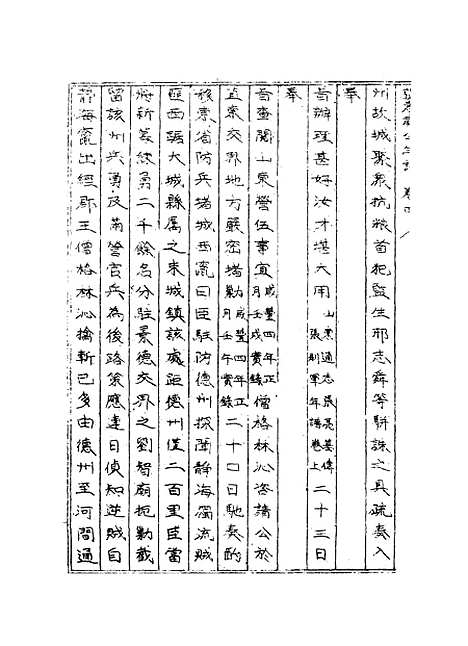 州故城聚衆抗粮首犯監生邢志舜等駢誅之具疏奏入
奉
旨辦理甚好汝才堪大用山東通志張亮基傳張制軍年譜卷上二十三日
奉
旨查閱山東營伍事宜咸豐四年正月壬戌實錄僧格林沁咨請公於
直東交界地方嚴密堵勦咸豐四年正月壬午實錄二十四日馳奏酌
移東省防兵堵城西竄曰臣駐防德州探聞靜海獨流賊
匪西竄大城縣屬之束城鎮該處距德州僅二百里臣當
將新募練勇二千餘名分駐景德交界之劉智廟扼勦截
留該州兵勇及南營官兵為後路策應連日偵知逆賊自
靜海竄出經郡王僧格林沁擒斬已多由德州至河間通